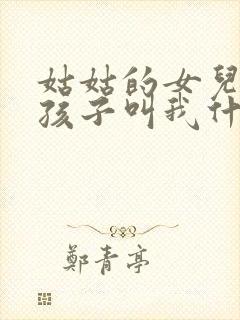 姑姑的女兒
孩子叫我什
鄭青亭